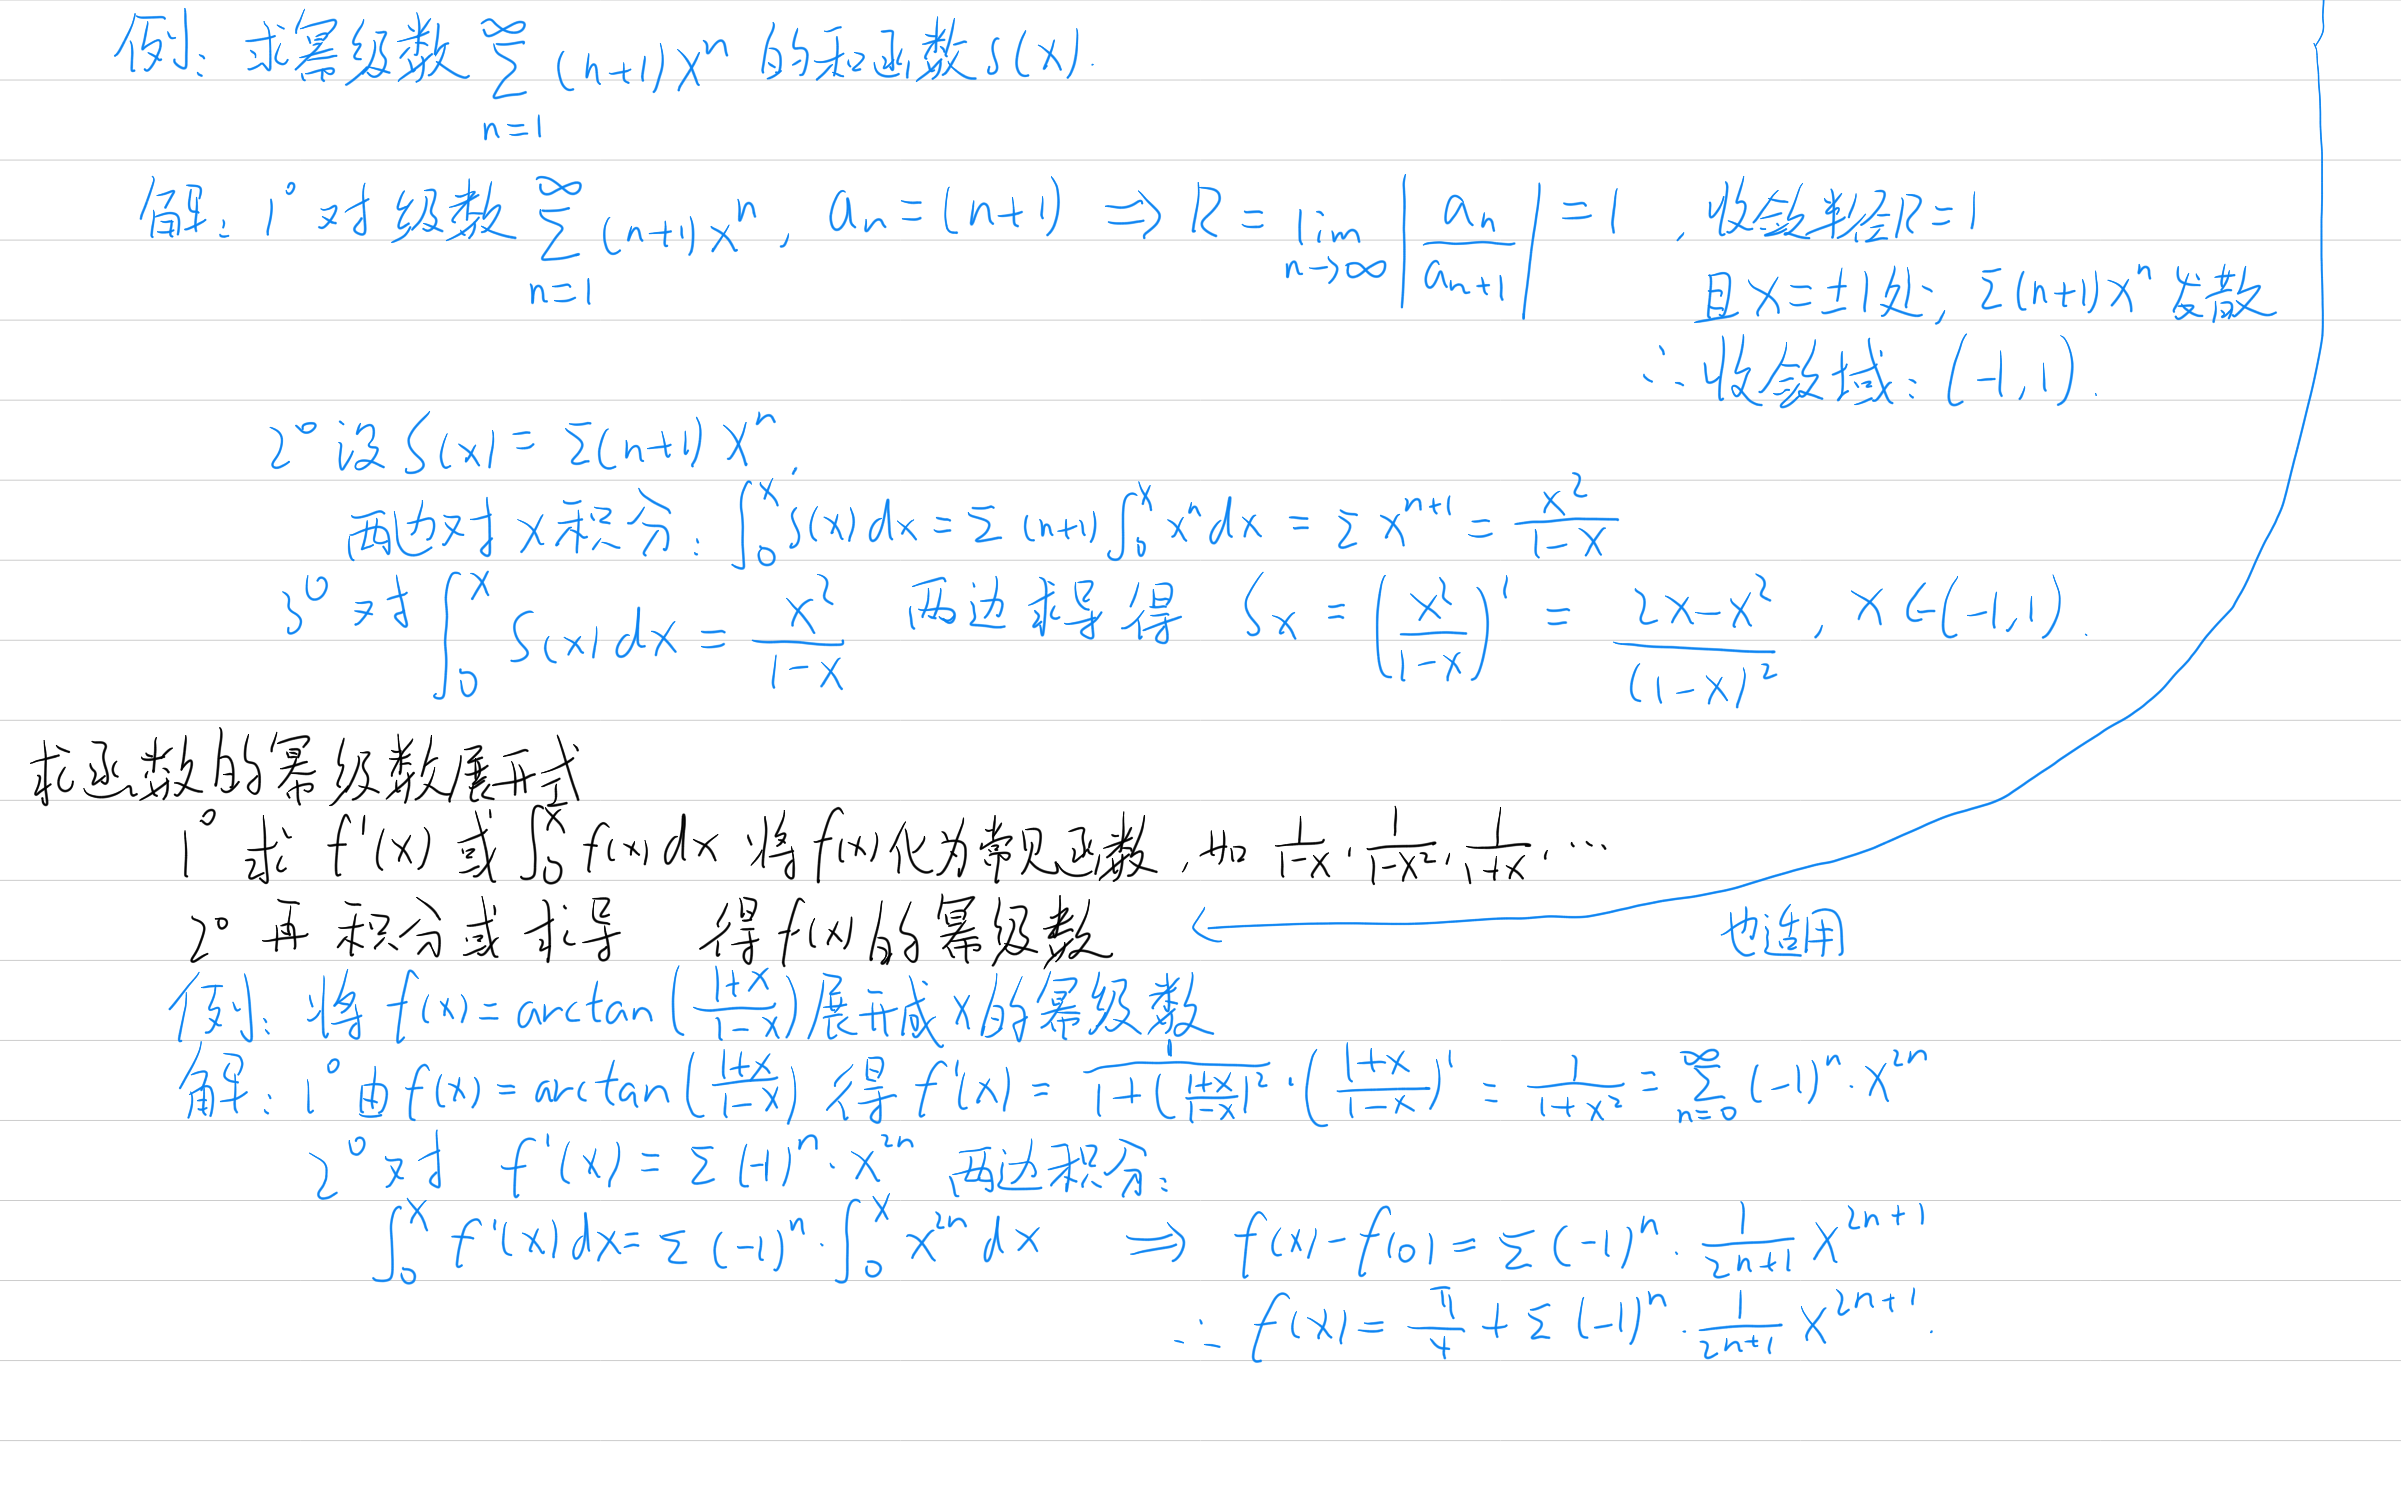 例: 求幂级数 ∑_{n=1}^{∞} (n+1)x^n 的和函数 S(x).
解: 1° 对级数 ∑_{n=1}^{∞} (n+1)x^n, a_n = (n+1) ⇒ R = lim_{n→∞} |a_n/a_{n+1}| = 1, 收敛半径R=1
且 x=±1处, ∑(n+1)x^n 发散
∴ 收敛域: (-1,1).
2° 设 S(x) = ∑(n+1)x^n,
两边对x积分: ∫_0^x S(x)dx = ∑(n+1)∫_0^x x^n dx = ∑x^{n+1} = x^2/(1-x)
3° 对 ∫_0^x S(x)dx = x^2/(1-x) 两边求导得 Sx = (x^2/(1-x))' = (2x-x^2)/(1-x)^2, x∈(-1,1).
求函数的幂级数展开式
1° 求 f'(x) 或 ∫_0^x f(x)dx 将f(x)化为常见函数, 如 1/(1-x), 1/(1-x^2), 1/(1+x), ...
2° 再积分或求导 得f(x)的幂级数
也适用
例: 将 f(x) = arctan((1+x)/(1-x)) 展开成x的幂级数
解: 1° 由 f(x) = arctan((1+x)/(1-x)) 得 f'(x) = 1/(1+((1+x)/(1-x))^2) · ((1+x)/(1-x))' = 1/(1+x^2) = ∑_{n=0}^{∞} (-1)^n · x^{2n}
2° 对 f'(x) = ∑(-1)^n · x^{2n} 两边积分:
∫_0^x f'(x)dx = ∑(-1)^n · ∫_0^x x^{2n} dx ⇒ f(x) - f(0) = ∑(-1)^n · 1/(2n+1) x^{2n+1}
∴ f(x) = π/4 + ∑(-1)^n · 1/(2n+1) x^{2n+1}.